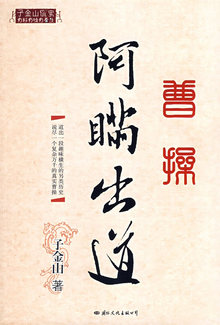 子金山说家
曹操
阿瞒出道
道出一段趣味横生的另类历史
说尽一个复杂万千的真实曹操
子金山 著
国际文化出版公司